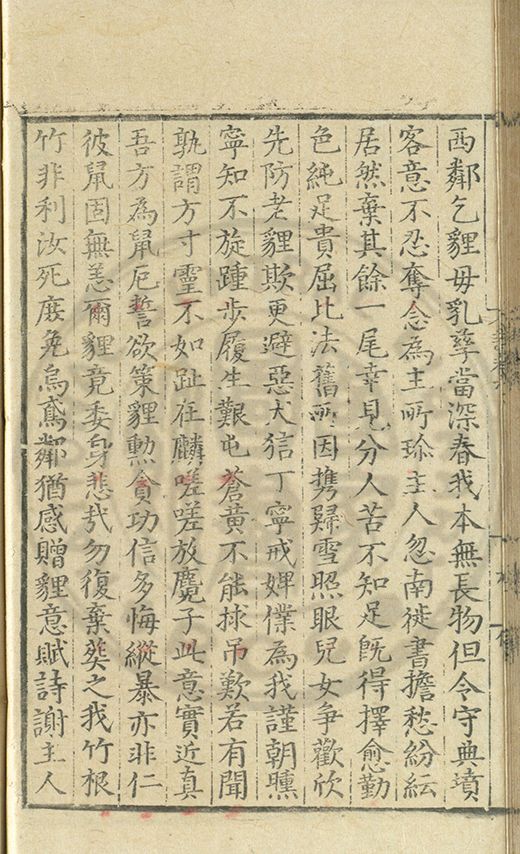 西鄰乞貍毋乳孳當深春我本無長物但令守典墳
客意不忍奪念為主所珍主人忽南徙書擔愁紛紜
居然棄其餘一尾幸見分人苦不知足旣得擇愈勤
色純足貴屈比法舊所因携歸雪照眼兒女爭歡欣
先防老貍欺更避惡犬狺丁寧戒婢僕為我謹朝曛
寧知不旋踵步履生艱屯蒼黃不能捄吊歎若有聞
孰謂方寸靈不如趾在麟嗟嗟放麑子此意實近真
吾方為鼠厄誓欲策貍勳貪功信多悔縱暴亦非仁
彼鼠固無恙爾貍竟委身悲哉勿復棄葵之我竹根
竹非利汝死庻免烏鳶鄰猶感贈貍意賦詩謝主人